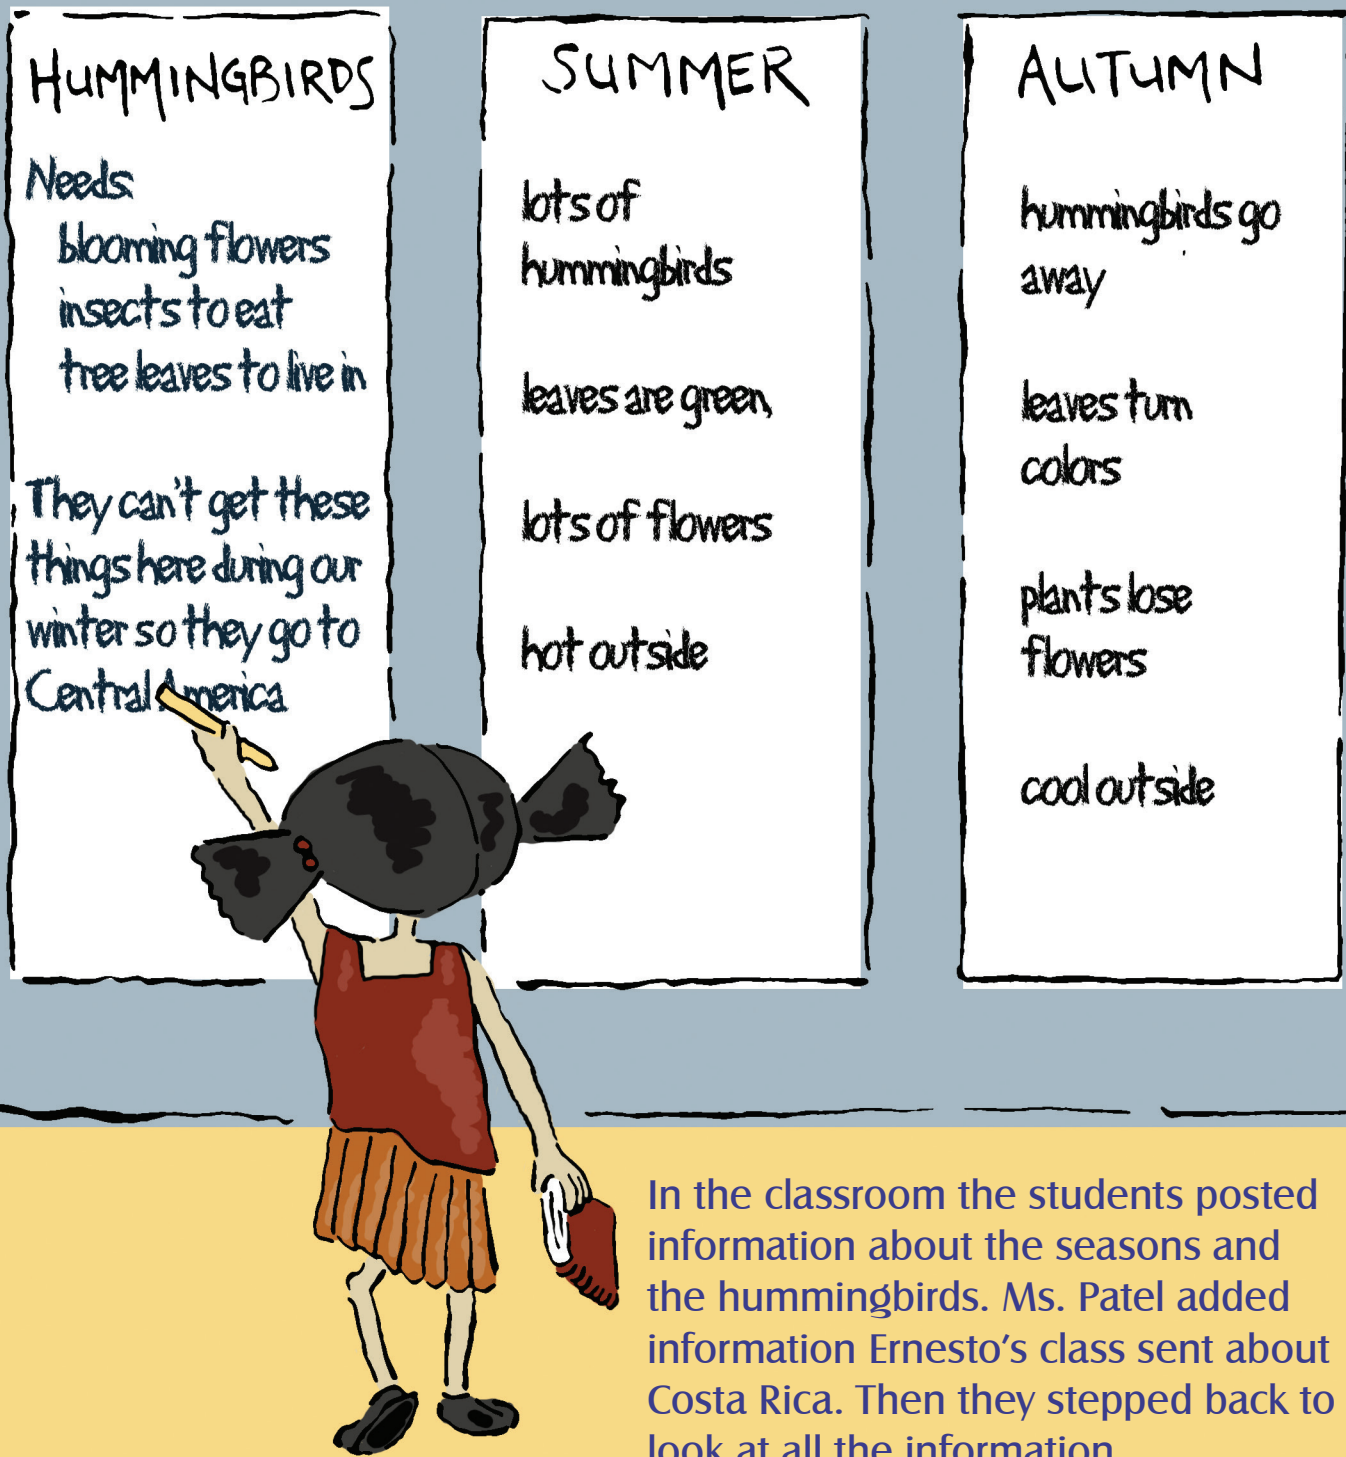 HUMMINGBIRDS
Needs:
blooming flowers
insects to eat
tree leaves to live in
They can't get these
things here during our
winter so they go to
Central America
SUMMER
lots of
hummingbirds
leaves are green,
lots of flowers
hot outside
AUTUMN
hummingbirds go
away
leaves turn
colors
plants lose
flowers
cool outside
In the classroom the students posted
information about the seasons and
the hummingbirds. Ms. Patel added
information Ernesto's class sent about
Costa Rica. Then they stepped back to
look at all the information